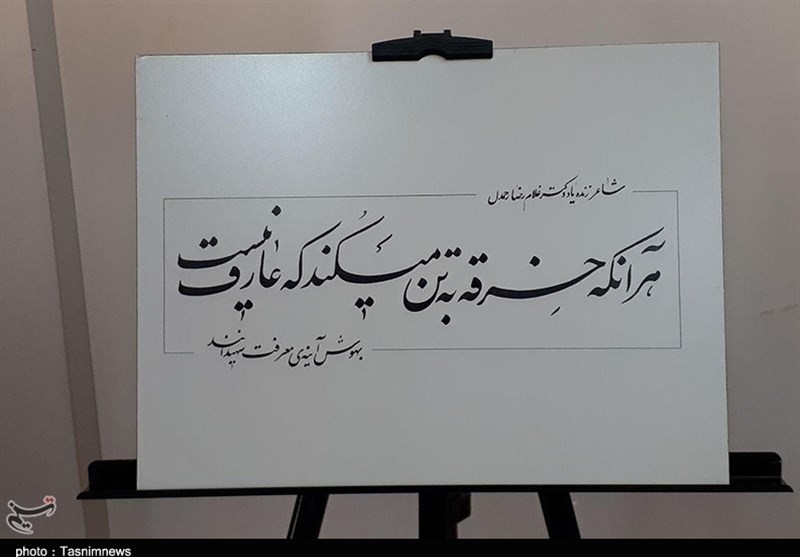 شاعر زنده یاد دکتر غلامرضا رحمدل
هر آنکه خرقه به تن میکند که عارف نیست
بهوش آینه‌ی معرفت شهیدانند
تسنیم
photo : Tasnimnews